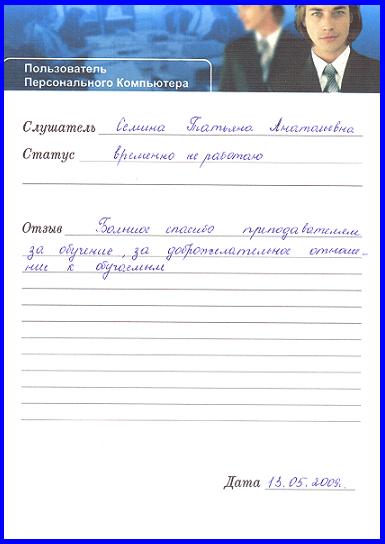 Пользователь
Персонального Компьютера
Слушатель Семина Татьяна Анатольевна
Статус временно не работаю
Отзыв Большое спасибо преподавателям
за обучение, за доброжелательное отноше-
ние к обучаемым
Дата 13.05.2009г.